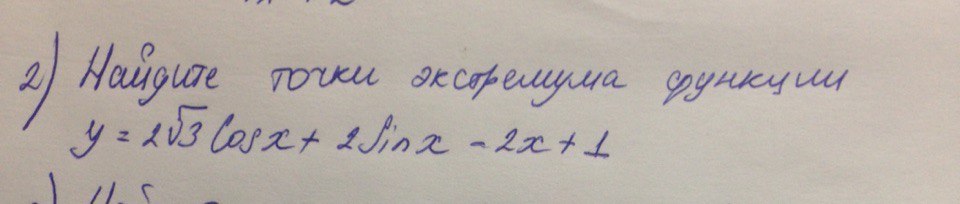 2) Найдите точки экстремума функции
y = 2√3 Cos x + 2 Sin x - 2x + 1